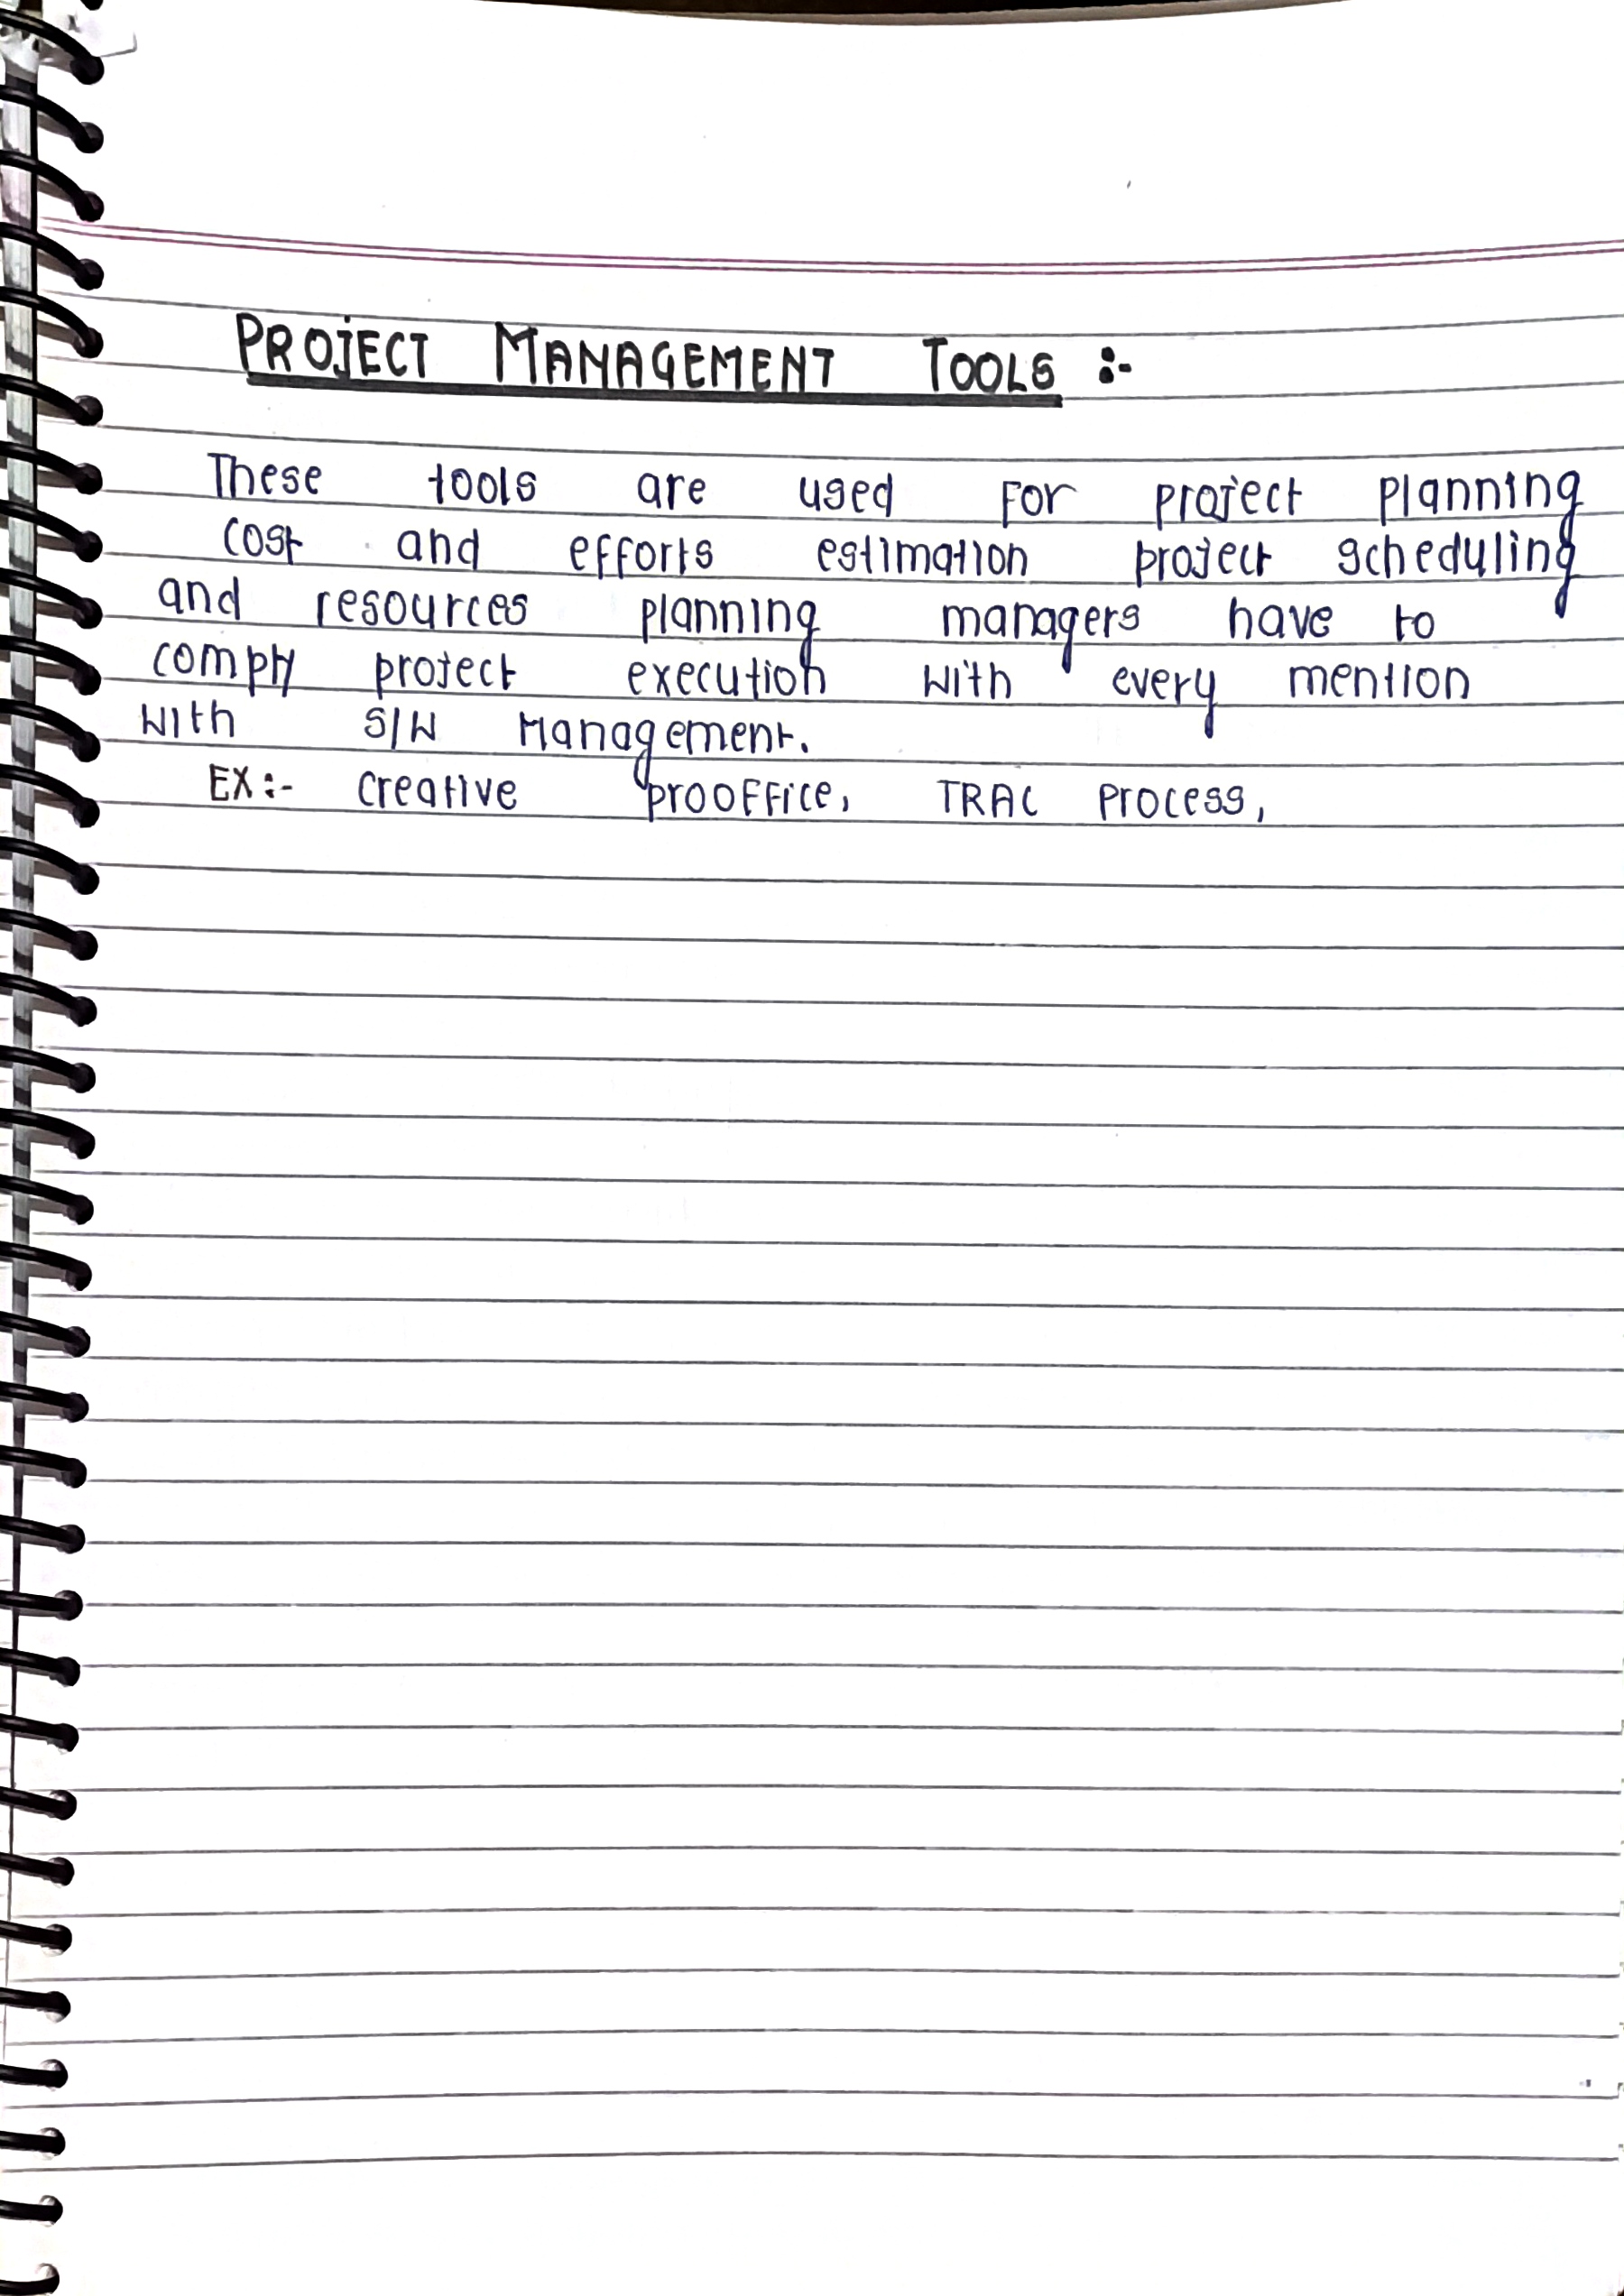 PROJECT MANAGEMENT TOOLS :-
These tools are used for project planning
cost and efforts estimation project scheduling
and resources planning managers have to
comply project execution with every mention
with S/W Management.
EX:- creative proOffice, TRAC Process,